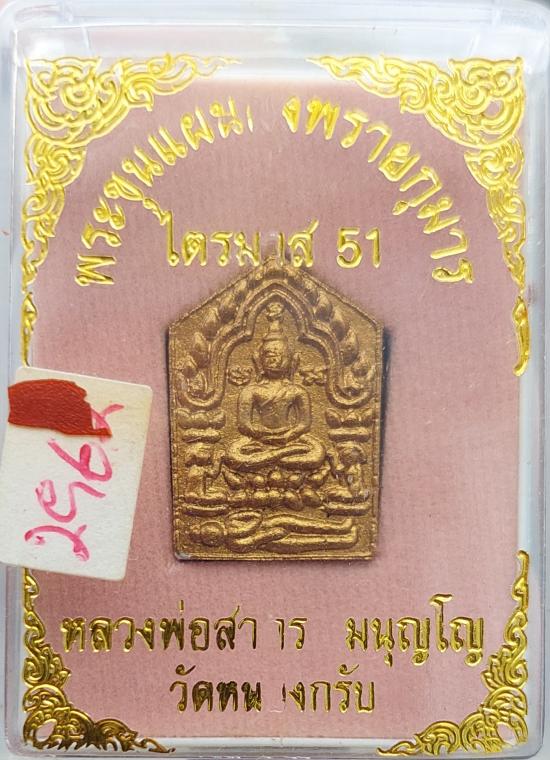 พระขุนแผน งพรายกุมาร
ไตรม ส 51
หลวงพ่อสา าร มนุญโญ
วัดหน งกรับ